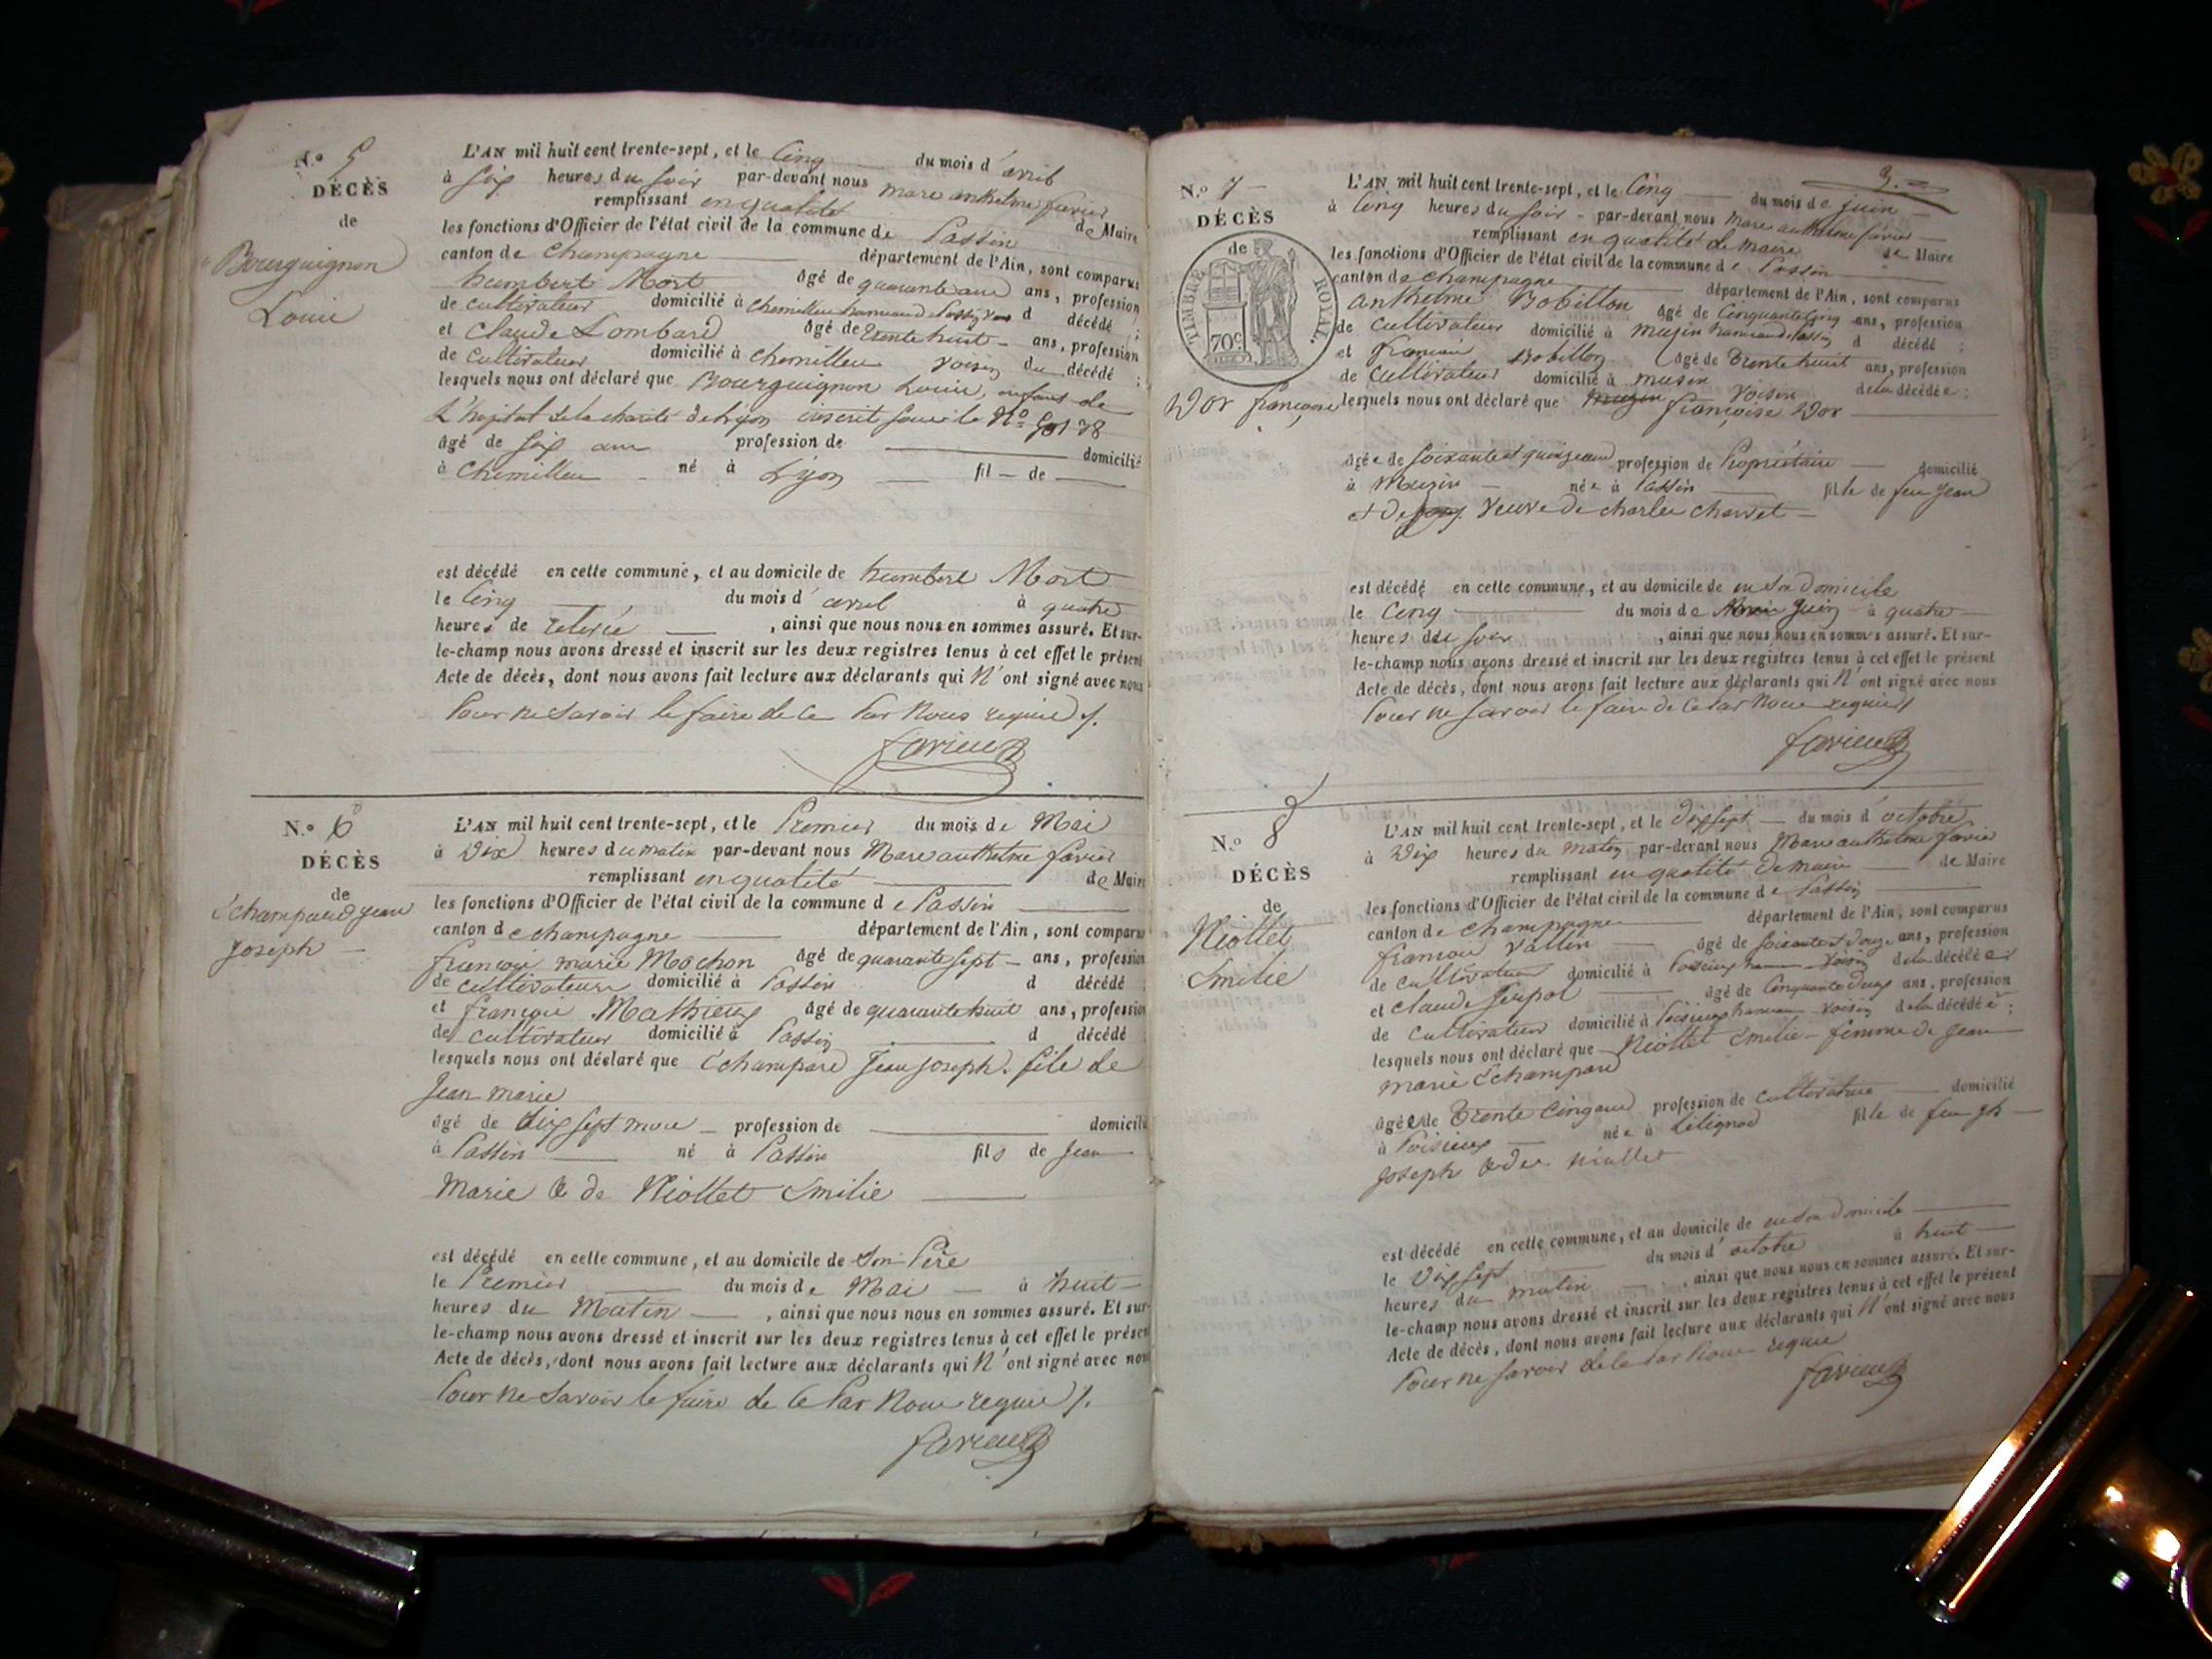 N.o 5
DÉCÈS
de
Bourguignon
Louis
L'AN mil huit cent trente-sept, et le Cinq du mois d'avril
à six heures du soir par-devant nous marc anthelme favier
remplissant en qualité de Maire
les fonctions d'Officier de l'état civil de la commune de Passin
canton de Champagne département de l'Ain, sont comparus
humbert Mort âgé de quarante ans, profession
de cultivateur domicilié à Chemilleu hameau de Passin d décédé ;
et Claude Lombard âgé de trente huit ans, profession
de cultivateur domicilié à Chemilleu voisin du décédé ;
lesquels nous ont déclaré que Bourguignon Louis, enfant de
L'hopital de la charité de Lyon inscrit sous le N.o
âgé de six ans profession de domicilié
à Chemilleu né à Lyon fil de
est décédé en cette commune, et au domicile de humbert Mort
le Cinq du mois d'avril à quatre
heures de relevée , ainsi que nous nous en sommes assuré. Et sur-
le-champ nous avons dressé et inscrit sur les deux registres tenus à cet effet le présent
Acte de décès, dont nous avons fait lecture aux déclarants qui N'ont signé avec nous
Pour ne savoir le faire de ce Par Nous requis /.
favier
N.o 6
DÉCÈS
de
Echampard jean
joseph
L'AN mil huit cent trente-sept, et le Premier du mois de Mai
à Dix heures du matin par-devant nous Marc anthelme favier
remplissant en qualité de Maire
les fonctions d'Officier de l'état civil de la commune de Passin
canton de champagne département de l'Ain, sont comparus
françois marie Mochon âgé de quarante sept ans, profession
de cultivateur domicilié à Passin d décédé
et françois Mathieux âgé de quarante huit ans, profession
de cultivateur domicilié à Passin d décédé
lesquels nous ont déclaré que Echampard Jean joseph. fils de
Jean marie
âgé de dix sept mois profession de domicilié
à Passin né à Passin fils de Jean
Marie & de Niollet Emilie
est décédé en cette commune, et au domicile de Son Père
le Premier du mois de Mai à huit
heures du Matin , ainsi que nous nous en sommes assuré. Et sur-
le-champ nous avons dressé et inscrit sur les deux registres tenus à cet effet le présent
Acte de décès, dont nous avons fait lecture aux déclarants qui N'ont signé avec nous
Pour ne Savoir le faire de ce Par Nous requis /.
favier
3.
N.o 7
DÉCÈS
de
TIMBRE ROYAL.
70c
Dor françoise
L'AN mil huit cent trente-sept, et le Cinq du mois de juin
à Cinq heures du soir par-devant nous marc anthelme favier
remplissant en qualité de maire de Maire
les fonctions d'Officier de l'état civil de la commune de Passin
canton de champagne département de l'Ain, sont comparus
anthelme Bobillon âgé de Cinquante Cinq ans, profession
de cultivateur domicilié à Muzin hameau de Passin d décédé ;
et françois Bobillon âgé de trente huit ans, profession
de cultivateur domicilié à musin voisin de la décédée ;
lesquels nous ont déclaré que françoise Dor
âgée de soixante et quinze ans profession de Propriétaire domicilié
à Muzin née à Passin fille de feu jean
et de veuve de charles charvet
est décédé en cette commune, et au domicile de en Son Domicile
le Cinq du mois de juin à quatre
heures du soir , ainsi que nous nous en sommes assuré. Et sur-
le-champ nous avons dressé et inscrit sur les deux registres tenus à cet effet le présent
Acte de décès, dont nous avons fait lecture aux déclarants qui N'ont signé avec nous
Pour ne savoir le faire de ce Par Nous requis /
favier
N.o 8
DÉCÈS
de
Niollet
Emilie
L'AN mil huit cent trente-sept, et le dix sept du mois d'octobre
à Dix heures du matin par-devant nous Marc anthelme favier
remplissant en qualité de maire de Maire
les fonctions d'Officier de l'état civil de la commune de Passin
canton de champagne département de l'Ain, sont comparus
françois Vallin âgé de soixante et douze ans, profession
de cultivateur domicilié à Poisieux hameau voisin de la décédée
et claude âgé de Cinquante deux ans, profession
de cultivateur domicilié à Poisieux hameau voisin de la décédée ;
lesquels nous ont déclaré que Niollet Emilie femme de jean
marie Echampard
âgée de Trente Cinq ans profession de cultivatrice domicilié
à Poisieux née à Lilignod fille de feu
joseph & de Niollet
est décédé en cette commune, et au domicile de en Son domicile
le Dix sept du mois d'octobre à huit
heures du matin , ainsi que nous nous en sommes assuré. Et sur-
le-champ nous avons dressé et inscrit sur les deux registres tenus à cet effet le présent
Acte de décès, dont nous avons fait lecture aux déclarants qui N'ont signé avec nous
Pour ne savoir de ce Par Nous requis
favier